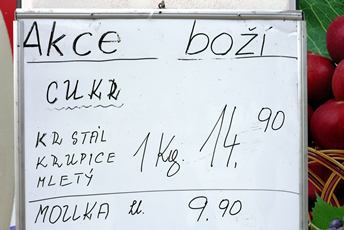 Akce boží
CUKR
KRSTÁL
KRUPICE 1 Kg. 14,90
MLETÝ
MOUKA 9.90